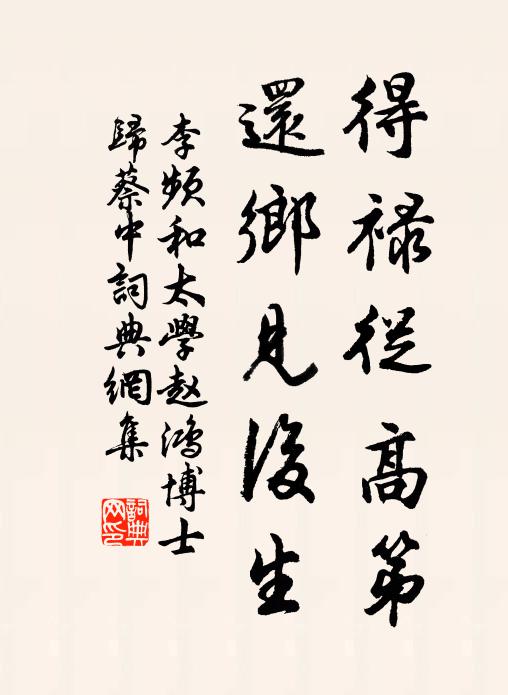 得祿從高第
還鄉見後生
李頻和太學赵鴻博士
歸蔡中詞典網集
詞典
网印